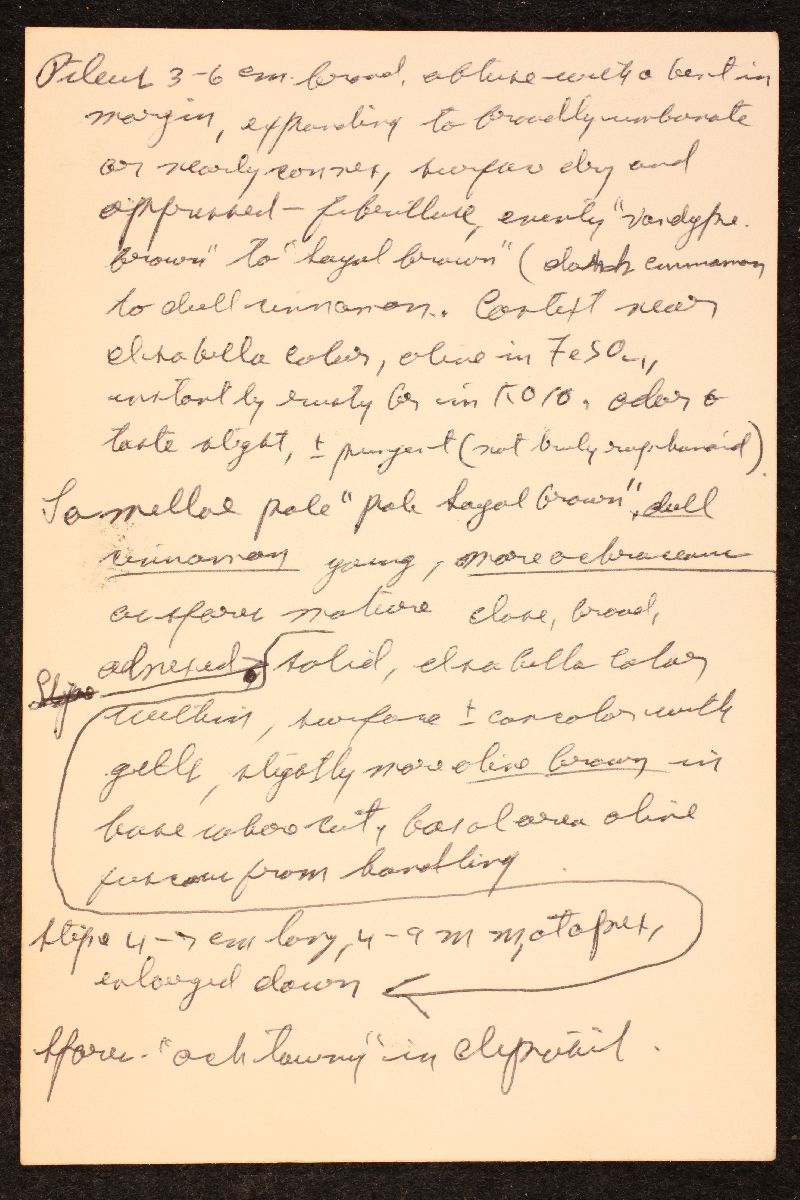 Pileus 3-6 cm broad, obtuse with a bent in
margin, expanding to broadly umbonate
or nearly convex, surface dry and
appressed-fibrillose, evenly "vandyke
brown" to "sayal brown" (dark cinnamon
to dull cinnamon. Context near
isabella color, olive in FeSO4,
instantly rusty br in KOH. odor &
taste slight, ± pungent (not truly raphanoid).
Lamellae pale "pale sayal brown", dull
cinnamon young, more ochraceous
as spores mature close, broad,
adnexed, solid, isabella color
Stipe
within, surface ± concolor with
gills, slightly more olive brown in
base where cut, basal area olive
fuscous from handling
stipe 4-7 cm long, 4-9 mm, at apex,
enlarged down
Spores "och tawny" in deposit.